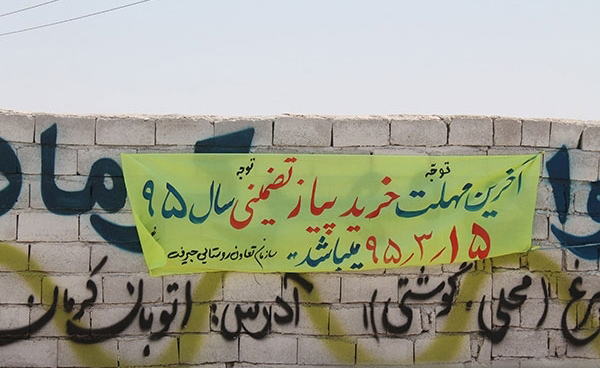 توجّه توجه
آخرین مهلت خرید پیاز تضمینی سال ۹۵
۹۵٫۳٫۱۵ میباشد. سازمان تعاون روستایی جیرفت
مرغ (محلی، گوشتی)، آدرس: اتوبان کرمان